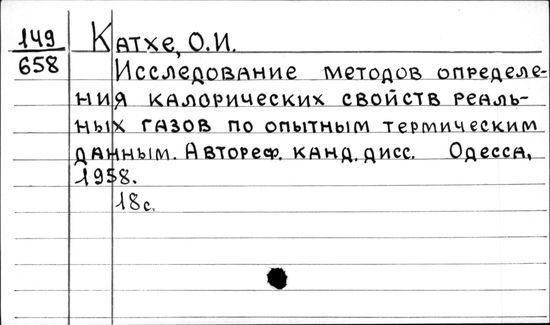 149
658
Катхе, О.И.
Исследование методов определе-
ния калорических свойств реаль-
ных газов по опытным термическим
данным. Автореф. канд. дисс. Одесса,
1958.
18с.